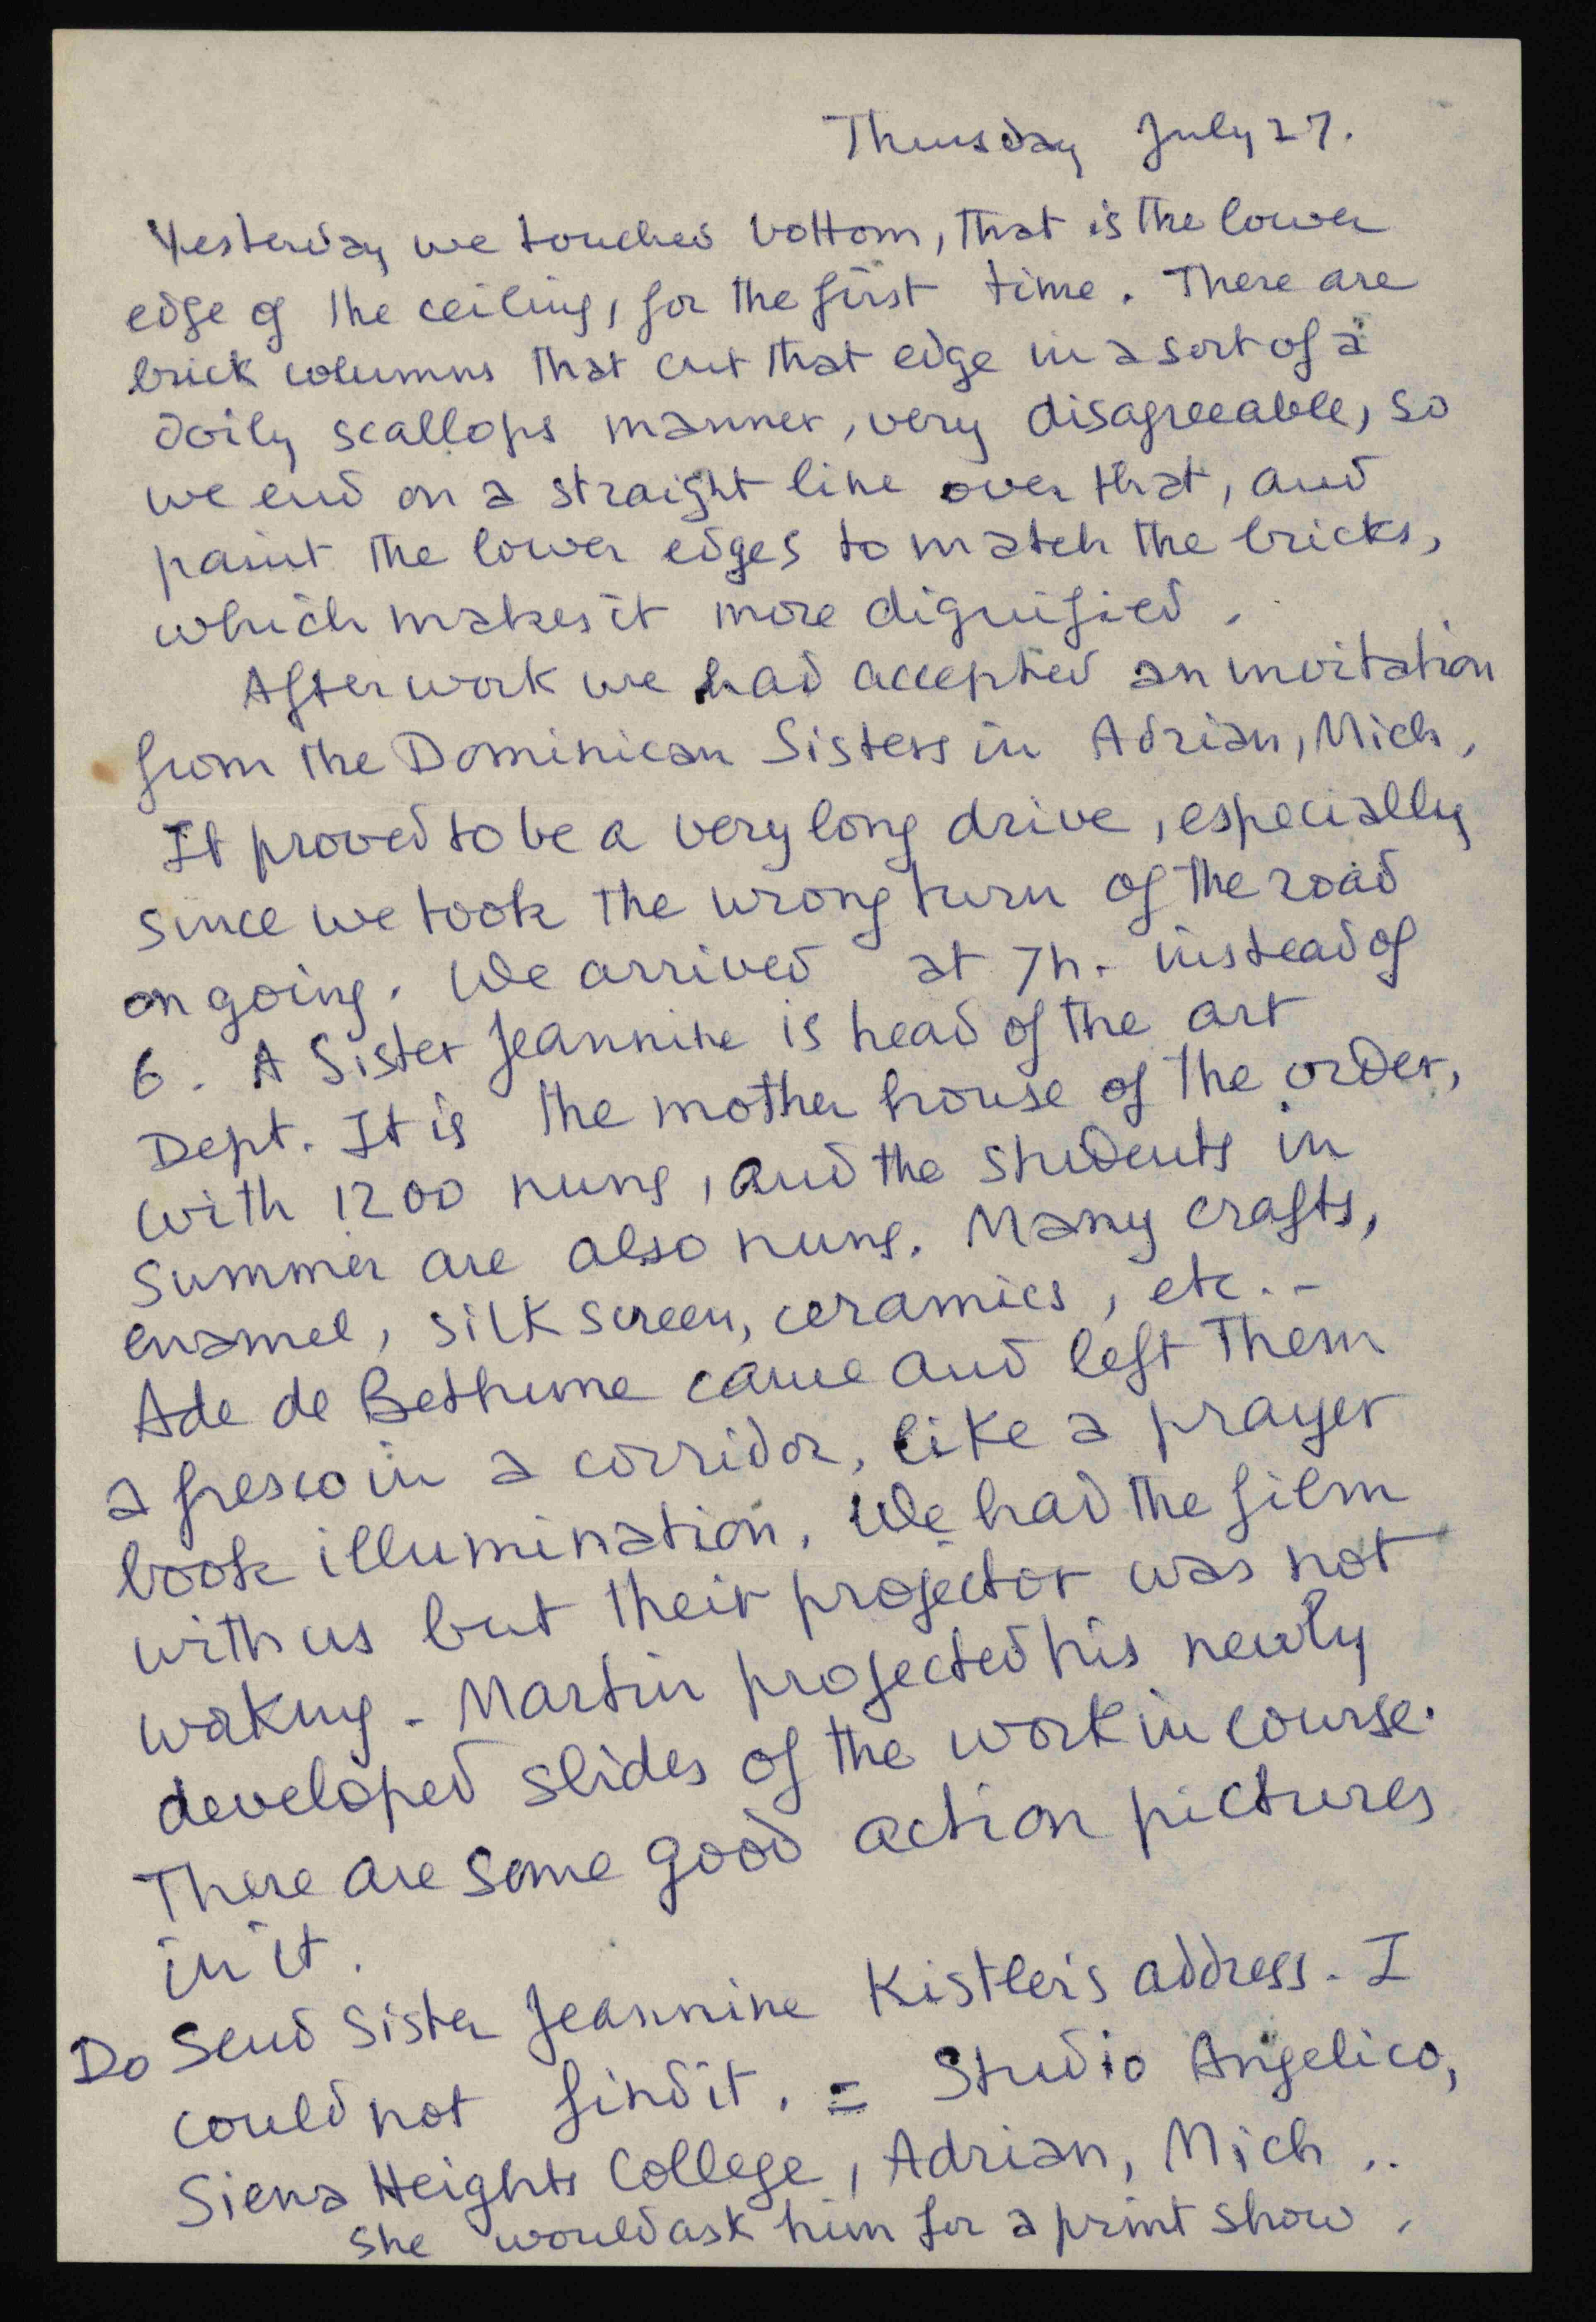 Thursday July 27.
Yesterday we touched bottom, that is the lower
edge of the ceiling, for the first time. There are
brick columns that cut that edge in a sort of a
doily scallops manner, very disagreeable, so
we end on a straight line over that, and
paint the lower edges to match the bricks,
which makes it more dignified.
After work we had accepted an invitation
from the Dominican Sisters in Adrian, Mich,
It proved to be a very long drive, especially
since we took the wrong turn of the road
on going. We arrived at 7h. instead of
6. A Sister Jeannine is head of the art
Dept. It is the mother house of the order,
with 1200 nuns, and the students in
summer are also nuns. Many crafts,
enamel, silk screen, ceramics, etc. -
Ade de Bethune came and left them
a fresco in a corridor, like a prayer
book illumination. We had the film
with us but their projector was not
working - Martin projected his newly
developed slides of the work in course.
There are some good action pictures
in it.
Do send Sister Jeannine Kistler's address. I
could not find it. = Studio Angelico,
Siena Heights College, Adrian, Mich..
She would ask him for a print show.